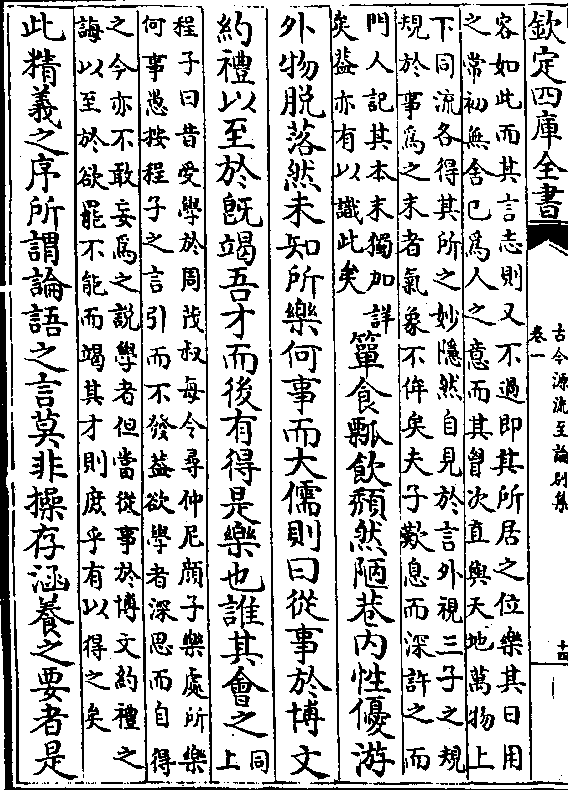 欽定四庫全書
古今源流至論別集
卷一
十四
容如此而其言志則又不過即其所居之位樂其日用
之常初無舍已為人之意而其曾次直與天地萬物上
下同流各得其所之妙隱然自見於言外視三子之規
規於事為之末者氣象不侔矣夫子歎息而深許之而
門人記其本末獨加詳
矣葢亦有以識此矣
簞食瓢飲頽然陋巷內性優游
外物脫落然未知所樂何事而大儒則曰從事於博文
約禮以至於旣竭吾才而後有得是樂也誰其會之
同
上
程子曰昔受學於周茂叔每令尋仲尼顏子樂處所樂
何事愚按程子之言引而不發葢欲學者深思而自得
之今亦不敢妄為之說學者但當從事於博文約禮之
誨以至於欲罷不能而竭其才則庶乎有以得之矣
此精義之序所謂論語之言莫非操存涵養之要者是